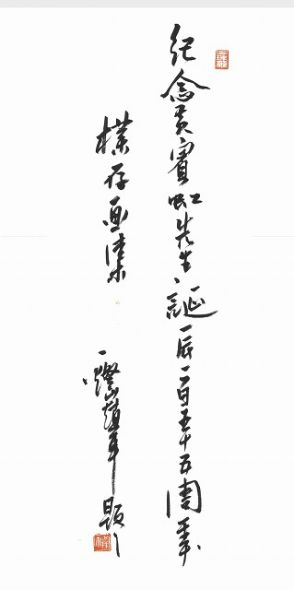 紀念黄賓虹先生誕辰一百五十五周年
樸存画集
題